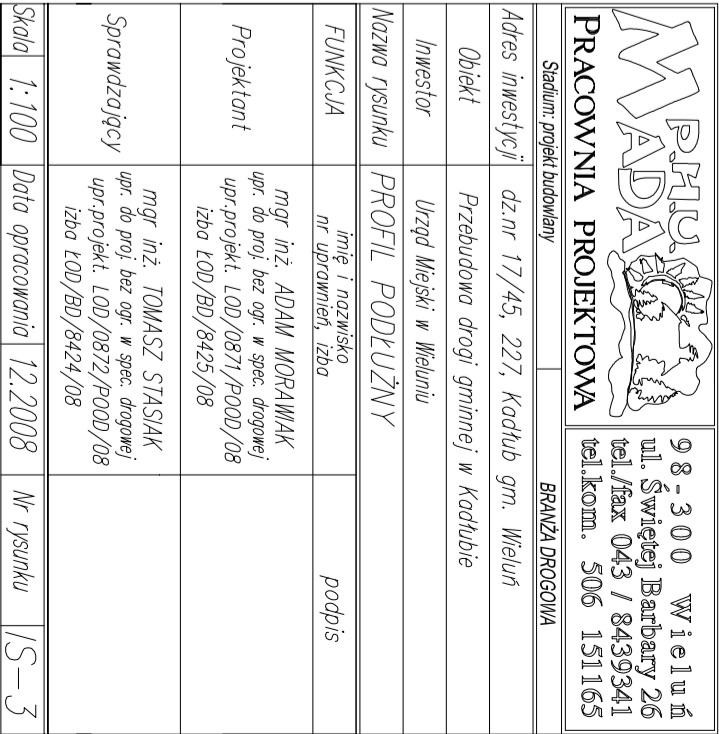 P.H.U.
MADA
PRACOWNIA PROJEKTOWA
98-300 Wieluń
ul. Świętej Barbary 26
tel./fax 043 / 8439341
tel.kom. 506 151165
Stadium: projekt budowlany BRANŻA DROGOWA
Adres inwestycji dz.nr 17/45, 227, Kadłub gm. Wieluń
Obiekt Przebudowa drogi gminnej w Kadłubie
Inwestor Urząd Miejski w Wieluniu
Nazwa rysunku PROFIL PODŁUŻNY
FUNKCJA imię i nazwisko podpis
nr uprawnień, izba
Projektant mgr inż. ADAM MORAWIAK
upr. do proj. bez ogr. w spec. drogowej
upr.projekt. LOD/0871/POOD/08
izba ŁOD/BD/8425/08
Sprawdzający mgr inż. TOMASZ STASIAK
upr. do proj. bez ogr. w spec. drogowej
upr.projekt. LOD/0872/POOD/08
izba ŁOD/BD/8424/08
Skala 1:100 Data opracowania 12.2008 Nr rysunku IS-3